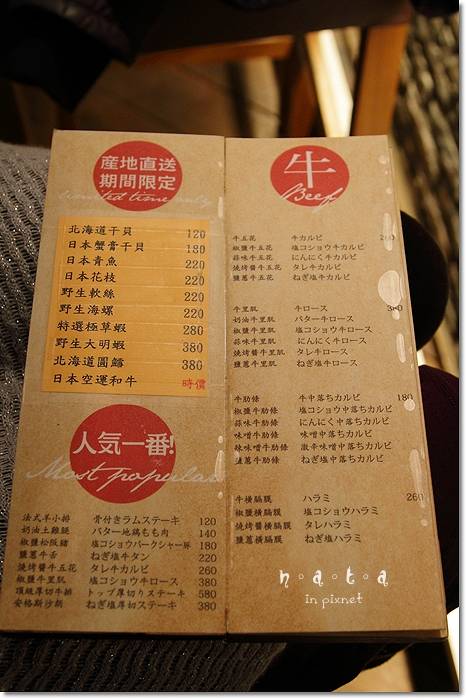 産地直送
期間限定
limited time only
北海道干貝 120
日本蟹膏干貝 180
日本青魚 220
日本花枝 220
野生軟絲 220
野生海螺 220
特選極草蝦 280
野生大明蝦 380
北海道圓鱈 380
日本空運和牛 時價
人気一番!
Most popular
法式羊小排 骨付きラムステーキ 120
奶油土雞腿 バター地鶏もも肉 140
椒鹽松阪豬 塩コショウバークシャー豚 180
鹽蔥牛舌 ねぎ塩牛タン 220
燒烤醬牛五花 タレ牛カルビ 260
椒鹽牛里肌 塩コショウ牛ロース 380
頂級厚切牛排 トップ厚切りステーキ 580
安格斯沙朗 ねぎ塩厚切ステーキ 380
牛
Beef
牛五花 牛カルビ 260
椒鹽牛五花 塩コショウ牛カルビ
蒜味牛五花 にんにく牛カルビ
燒烤醬牛五花 タレ牛カルビ
鹽蔥牛五花 ねぎ塩牛カルビ
牛里肌 牛ロース 380
奶油牛里肌 バター牛ロース
椒鹽牛里肌 塩コショウ牛ロース
蒜味牛里肌 にんにく牛ロース
燒烤醬牛里肌 タレ牛ロース
鹽蔥牛里肌 ねぎ塩牛ロース
牛肋條 牛中落ちカルビ 180
椒鹽牛肋條 塩コショウ中落ちカルビ
蒜味牛肋條 にんにく中落ちカルビ
味噌牛肋條 味噌中落ちカルビ
辣味噌牛肋條 激辛味噌中落ちカルビ
鹽蔥牛肋條 ねぎ塩中落ちカルビ
牛橫膈膜 ハラミ 260
椒鹽橫膈膜 塩コショウハラミ
燒烤醬橫膈膜 タレハラミ
鹽蔥橫膈膜 ねぎ塩ハラミ
n·a·t·a
in pixnet